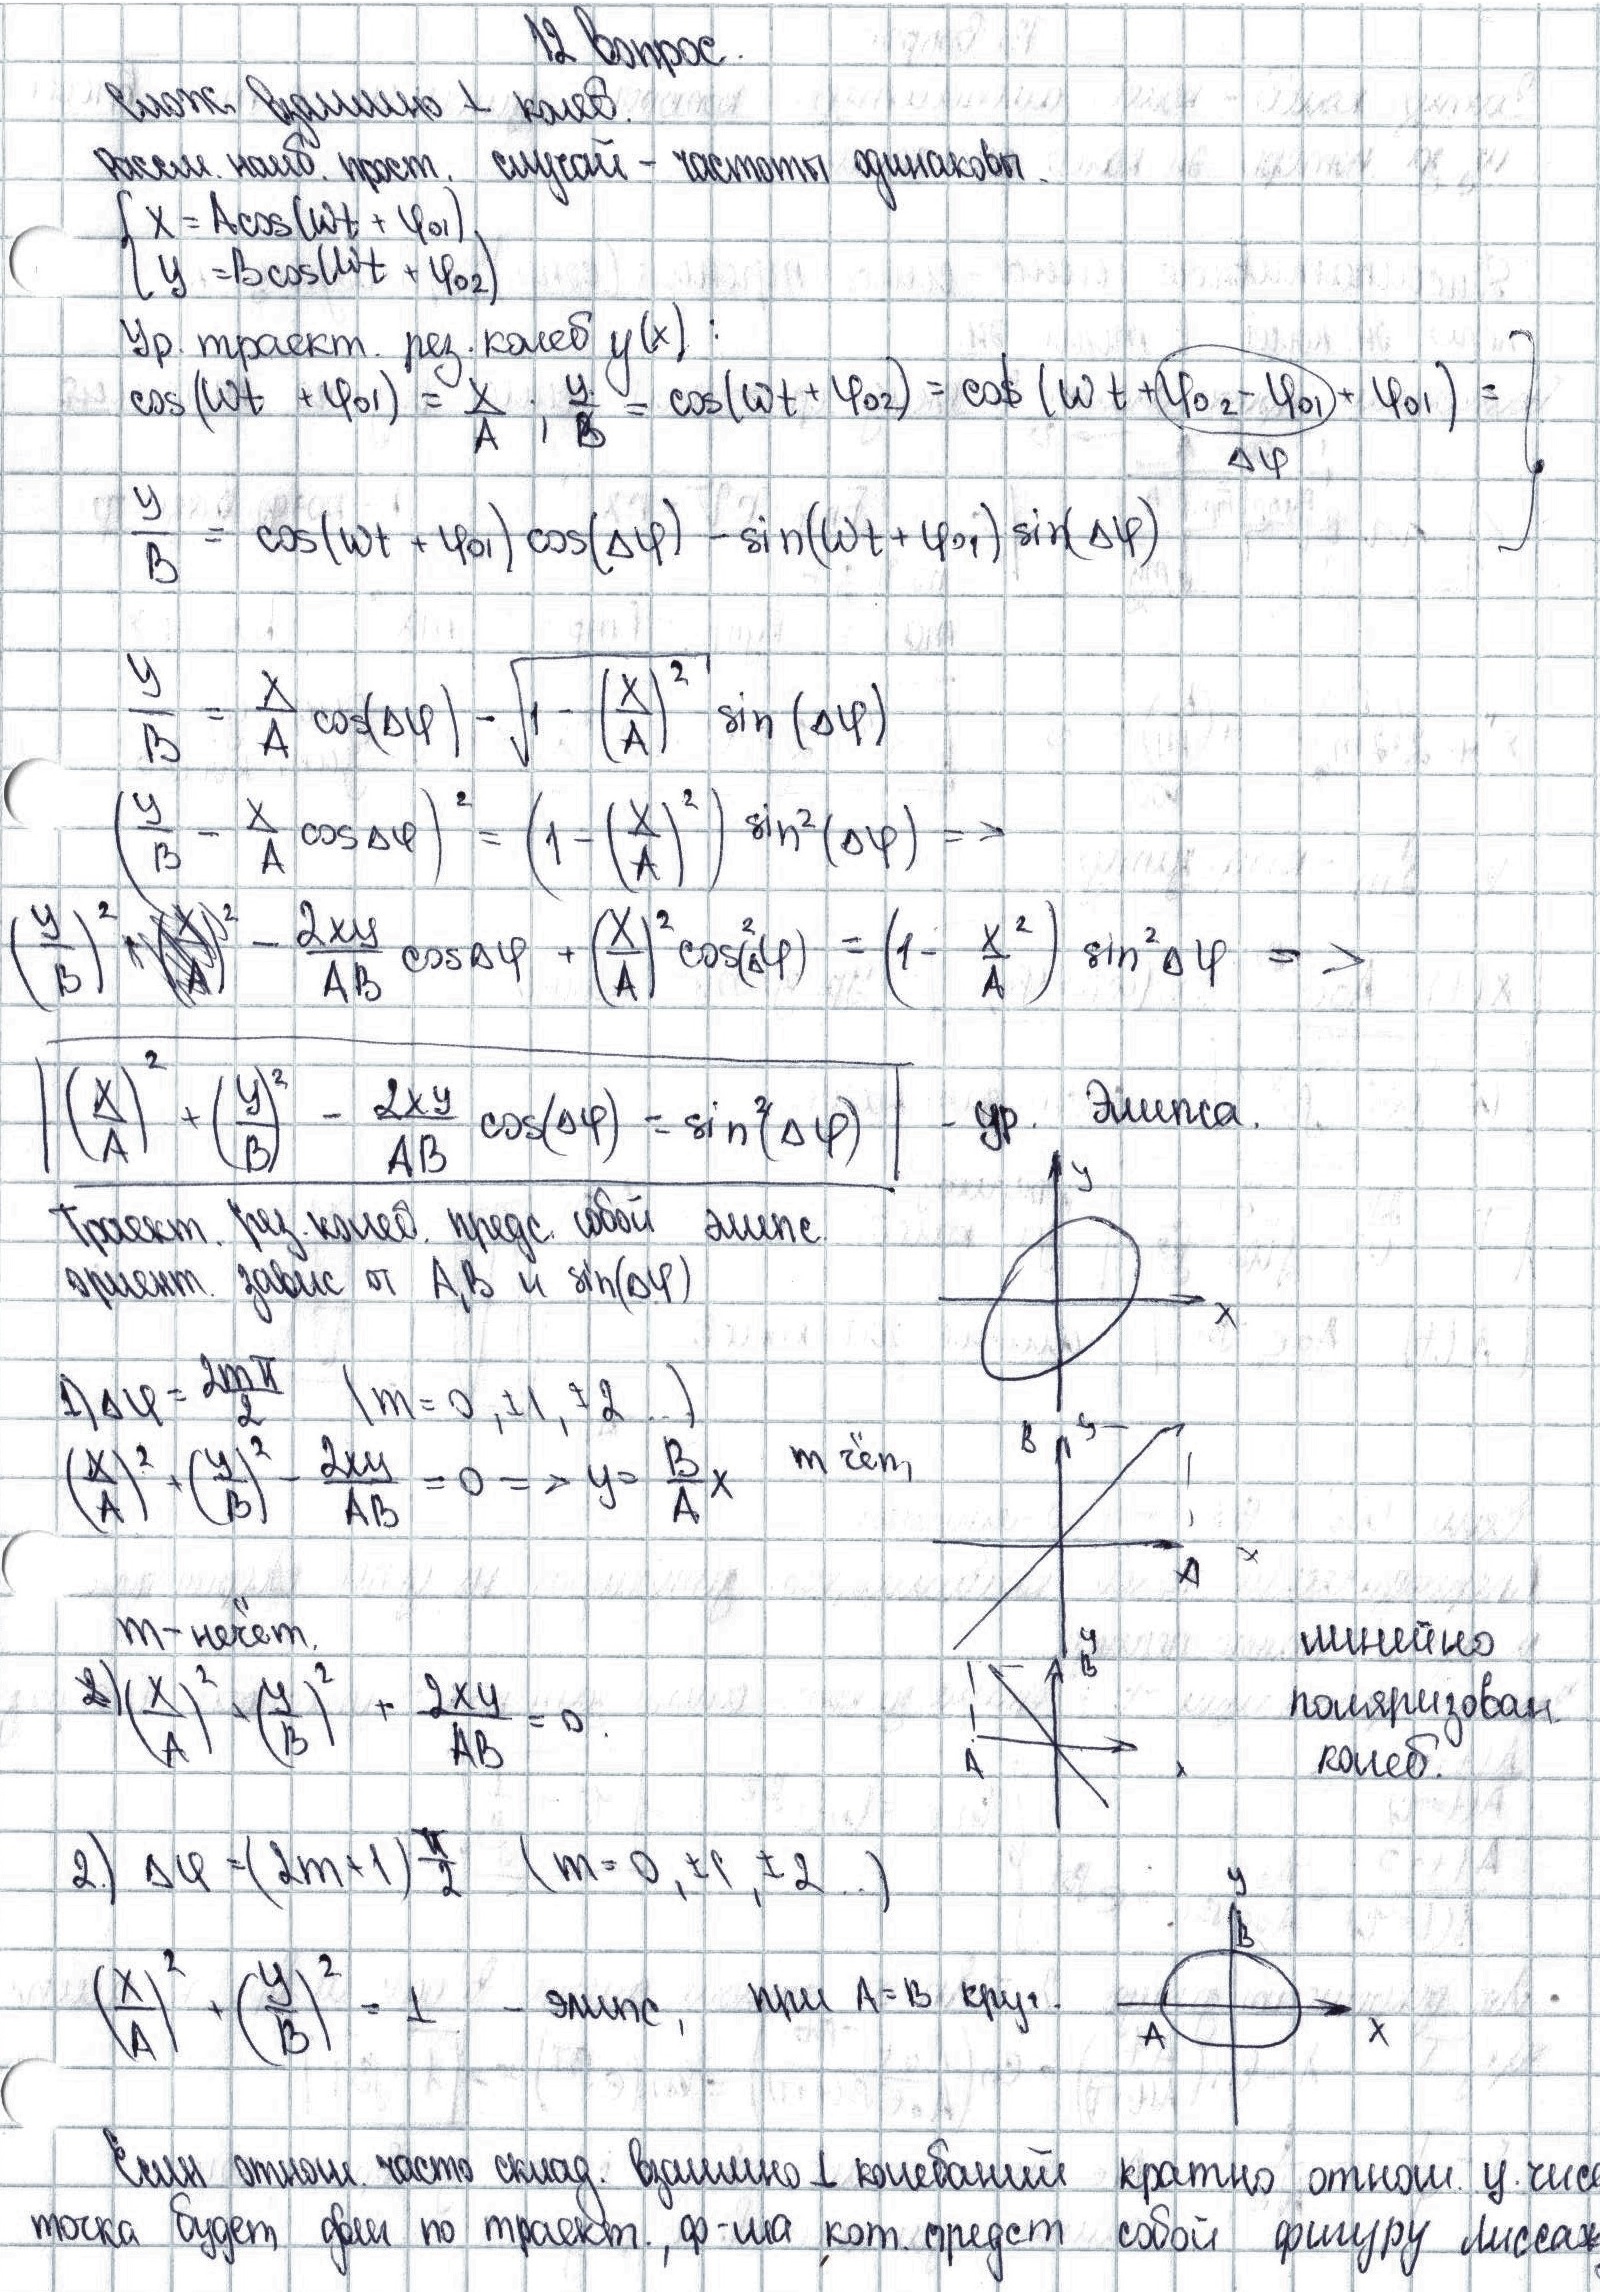 12 вопрос.
Слож. взаимно ⊥ колеб.
Рассм. наиб. прост. случай - частоты одинаковы.
{ X = A cos(ωt + φ01)
{ y = B cos(ωt + φ02)
Ур. траект. рез. колеб y(x):
cos(ωt + φ01) = X/A ; y/B = cos(ωt + φ02) = cos(ωt + φ02 - φ01 + φ01) =
Δφ
y/B = cos(ωt + φ01) cos(Δφ) - sin(ωt + φ01) sin(Δφ)
y/B = X/A cos(Δφ) - √(1 - (X/A)²) sin(Δφ)
(y/B - X/A cosΔφ)² = (1 - (X/A)²) sin²(Δφ) =>
(y/B)² - 2xy/AB cosΔφ + (X/A)² cos²(Δφ) = (1 - X²/A) sin²Δφ =>
(X/A)² + (y/B)² - 2xy/AB cos(Δφ) = sin²(Δφ) - ур. Элипса.
Траект. рез. колеб. предс. собой элипс.
ориент. завис от A,B и sin(Δφ)
y
x
1) Δφ = 2mπ/2 (m = 0, ±1, ±2 ...)
(X/A)² + (y/B)² - 2xy/AB = 0 => y = B/A x m чёт,
B y
A x
m - нечёт.
2) (X/A)² + (y/B)² + 2xy/AB = 0.
y
B
A
линейно
поляризован.
колеб.
2.) Δφ = (2m+1) π/2 (m = 0, ±1, ±2 ...)
(X/A)² + (y/B)² = 1 - элипс, при A = B круг.
y
B
A x
Если отнош. часто склад. взаимно ⊥ колебаний кратно отнош. ц. чисе
точка будет дви по траект., ф-ма кот. предст собой фигуру Лиссаж